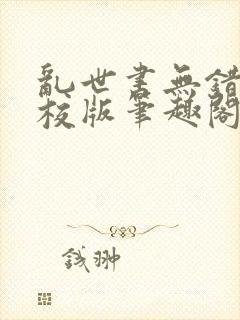 亂世書無錯
校版筆趣閣
錢翀